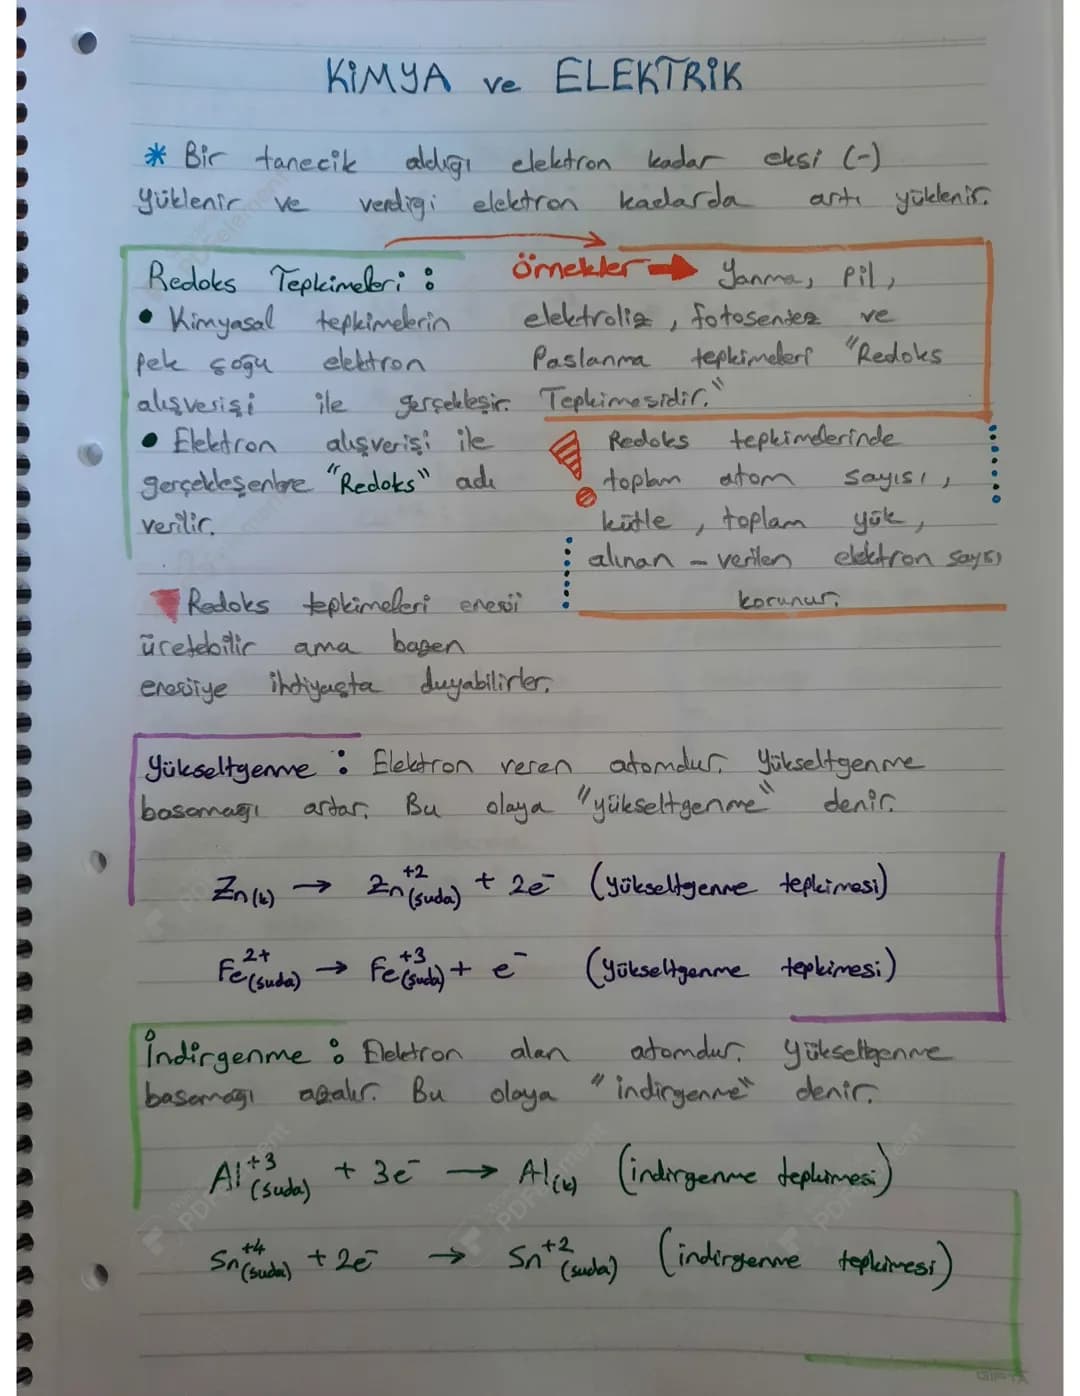 KİMYA ve ELEKTRİK
* Bir tanecik aldığı elektron kadar eksi (-)
Yüklenir ve verdiği elektron kadarda artı yüklenir.
Redoks Tepkimeleri :
• Kimyasal tepkimelerin
pek çoğu elektron
alışverişi ile gerçekleşir.
• Elektron alışverişi ile
gerçekleşenlere "Redoks" adı
verilir.
Örnekler → Yanma, Pil,
elektroliz, fotosentez ve
Paslanma tepkimeleri "Redoks
Tepkimesidir."
! Redoks tepkimelerinde
toplam atom sayısı,
kütle, toplam yük,
alınan - verilen elektron sayısı
korunur.
Redoks tepkimeleri enerji
üretebilir ama bazen
enerjiye ihtiyaçta duyabilirler.
Yükseltgenme : Elektron veren atomdur. Yükseltgenme
basamağı artar. Bu olaya "yükseltgenme" denir.
Zn(k) → Zn⁺²(suda) + 2e⁻ (yükseltgenme tepkimesi)
Fe²⁺(suda) → Fe⁺³(suda) + e⁻ (yükseltgenme tepkimesi)
İndirgenme : Elektron alan atomdur. Yükseltgenme
basamağı azalır. Bu olaya "indirgenme" denir.
Al⁺³(suda) + 3e⁻ → Al(k) (indirgenme tepkimesi)
Sn⁺⁴(suda) + 2e⁻ → Sn⁺²(suda) (indirgenme tepkimesi)